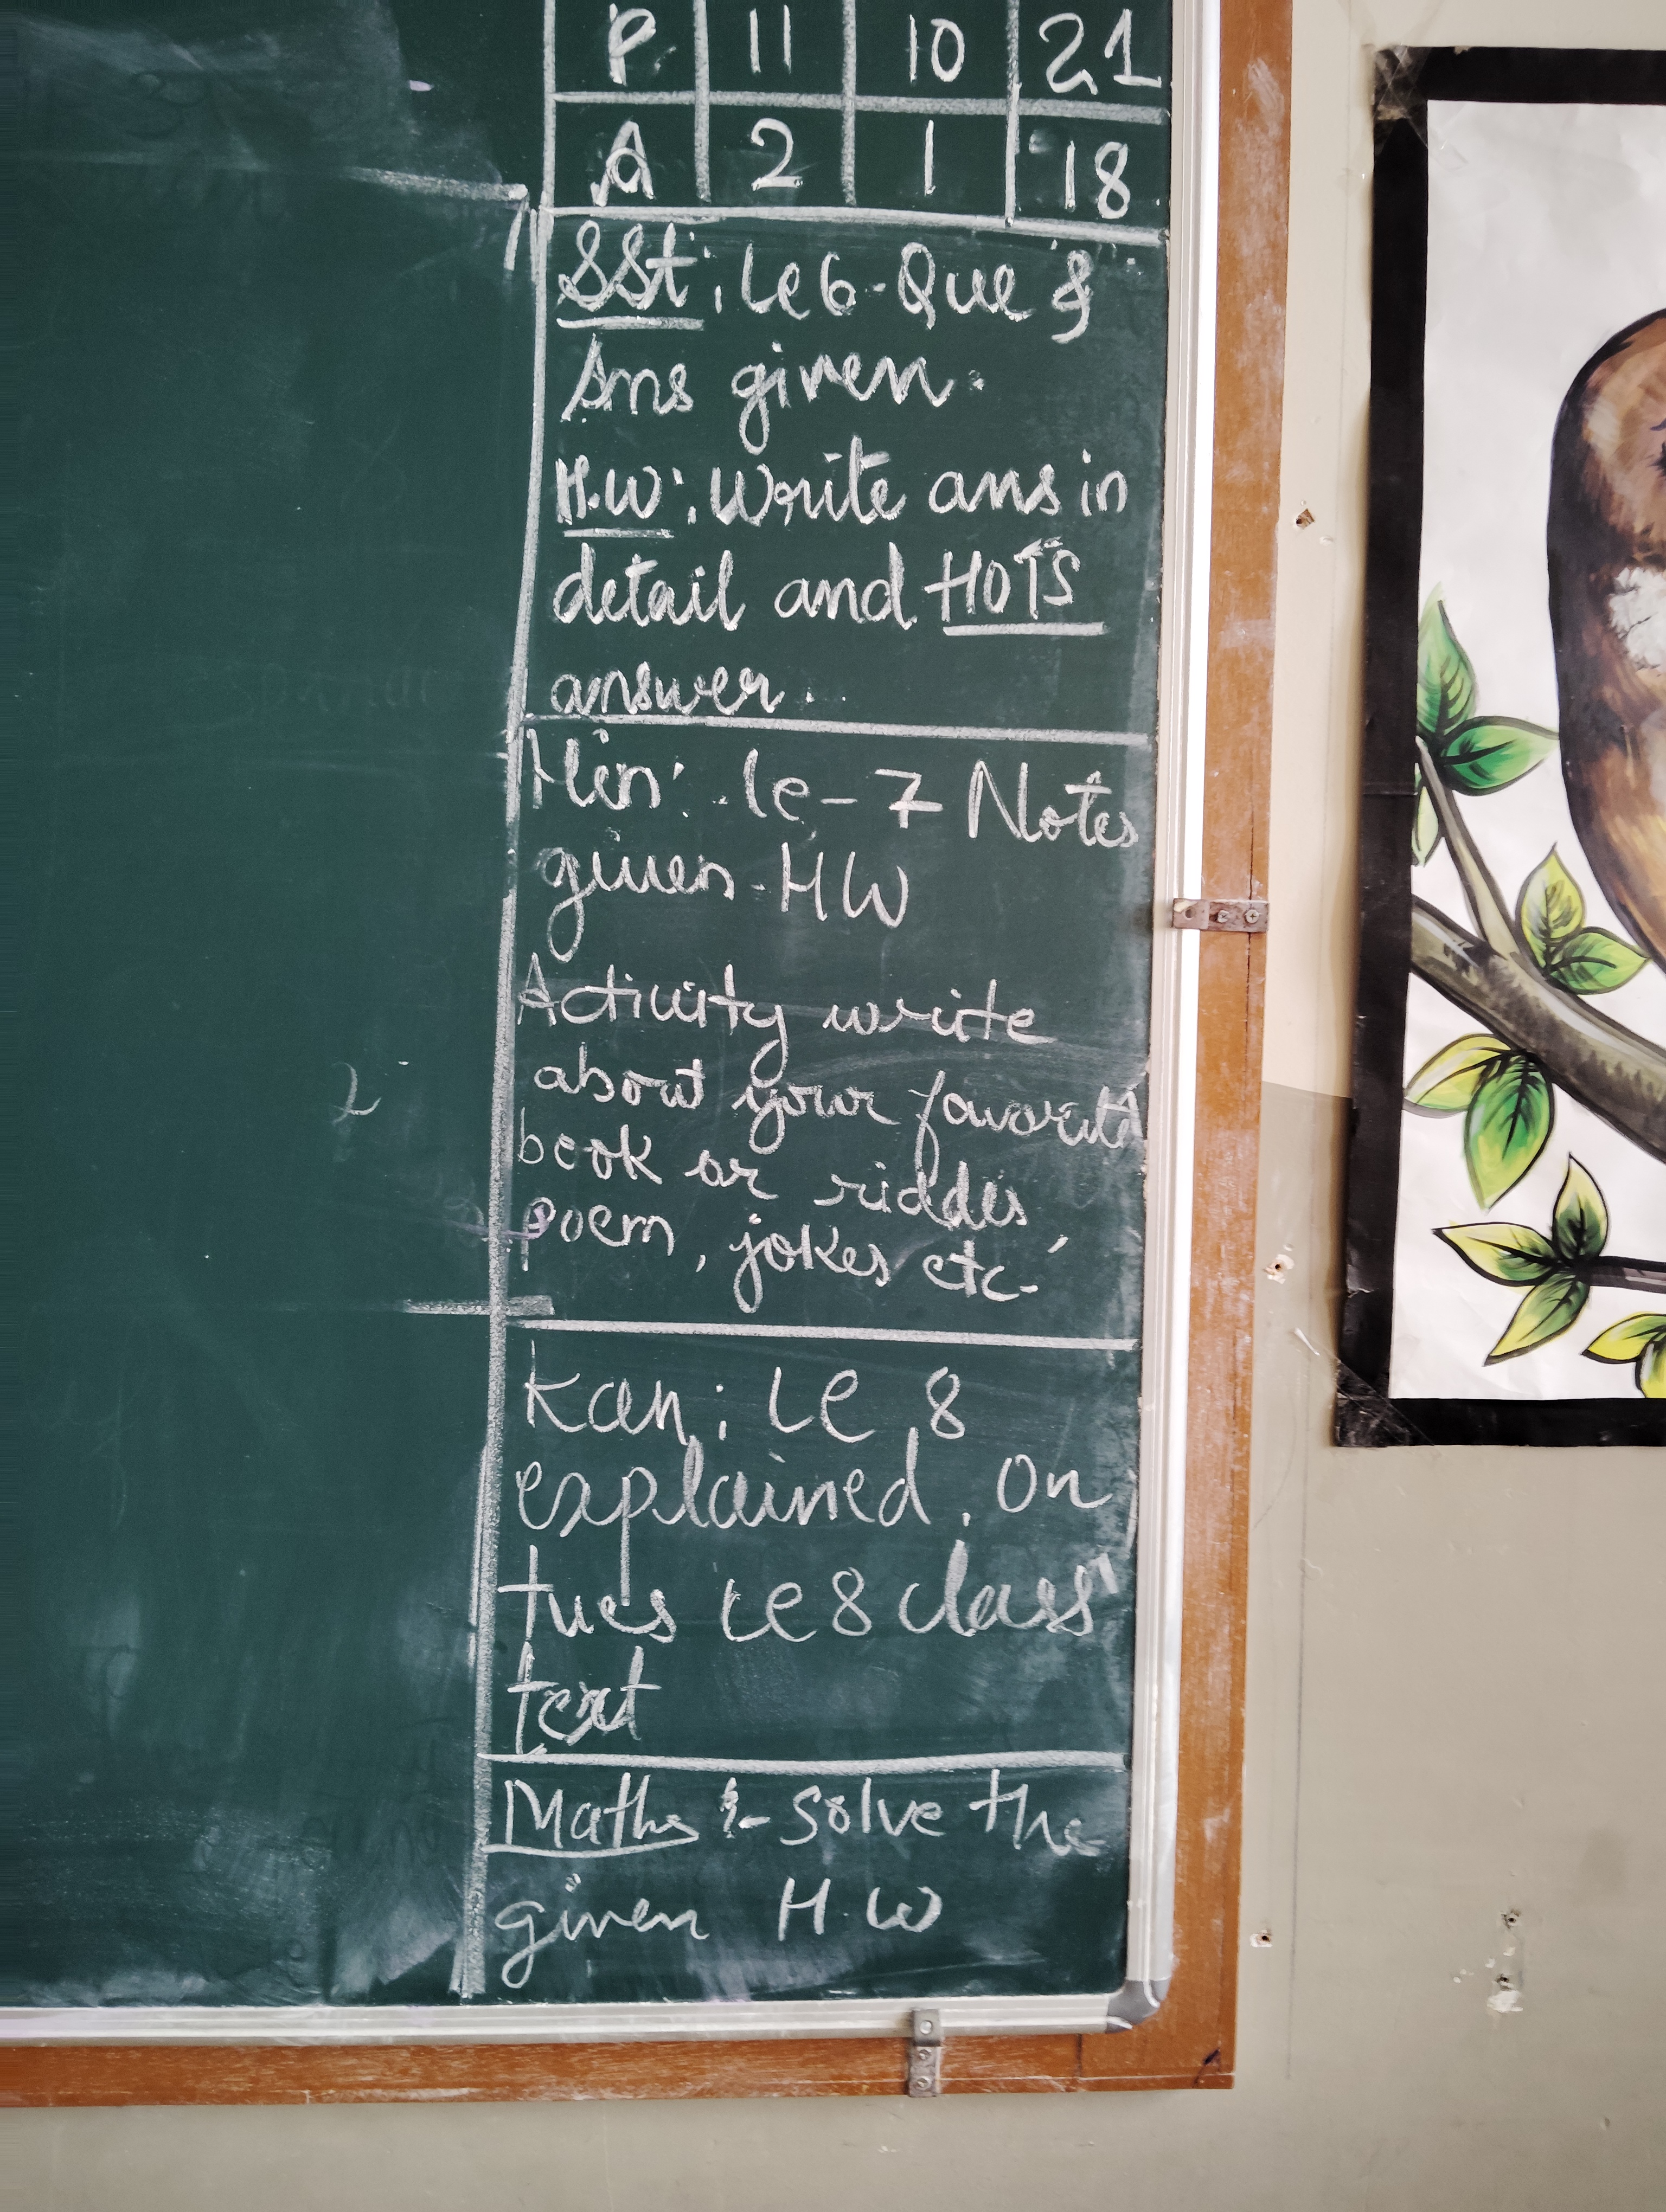 P 11 10 21
A 2 1 18
SSt: Le 6 - Que &
Ans given.
H.W: Write ans in
detail and HOTS
answer.
Hin: le - 7 Notes
given - HW
Activity write
about your favorite
book or riddes
poem, jokes etc.
Kan: Le 8
explained. on
tues Le 8 class
text
Maths :- Solve the
given H.W